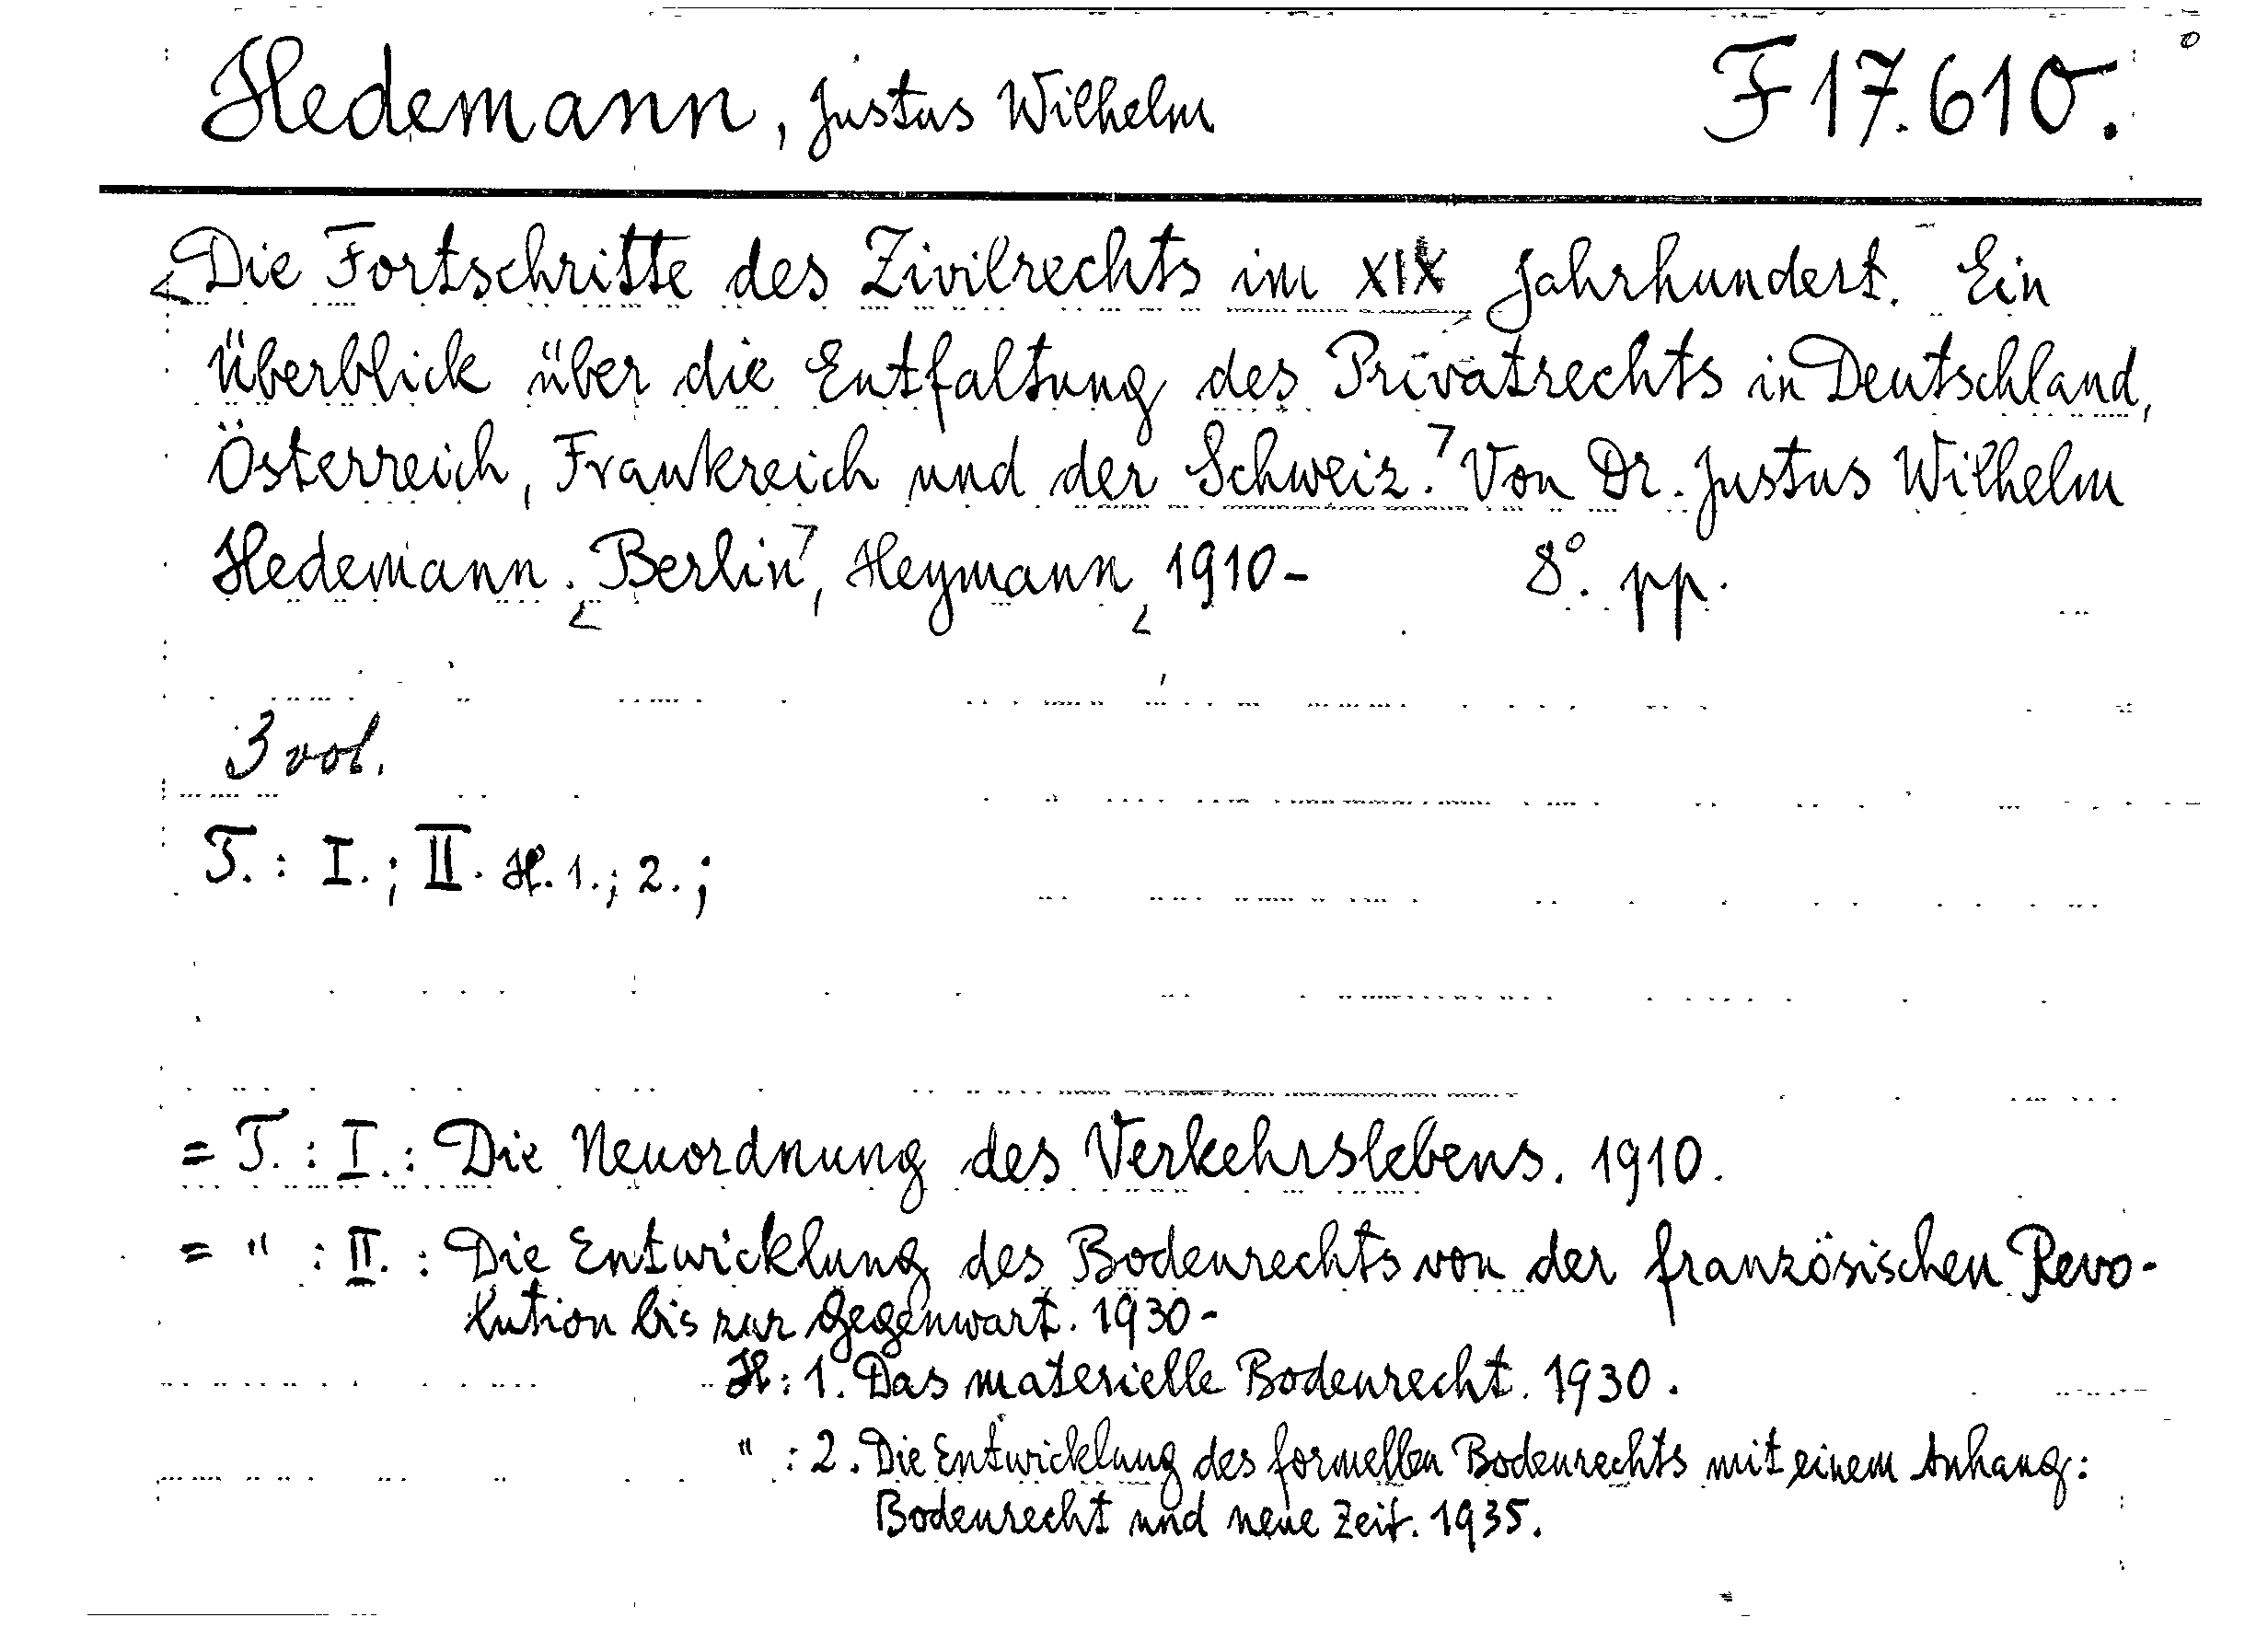 Hedemann, Justus Wilhelm F 17.610.
<Die Fortschritte des Zivilrechts im XIX Jahrhundert. Ein
Überblick über die Entfaltung des Privatrechts in Deutschland,
Österreich, Frankreich und der Schweiz.> Von Dr. Justus Wilhelm
Hedemann. <Berlin>, Heymann, <1910- 8°. pp.
3 vol.
T.: I.; II. H. 1.; 2.;
= T.: I.: Die Neuordnung des Verkehrslebens. 1910.
= " : II.: Die Entwicklung des Bodenrechts von der französischen Revo-
lution bis zur Gegenwart. 1930-
H: 1. Das materielle Bodenrecht. 1930.
" : 2. Die Entwicklung des formellen Bodenrechts mit einem Anhang:
Bodenrecht und neue Zeit. 1935.